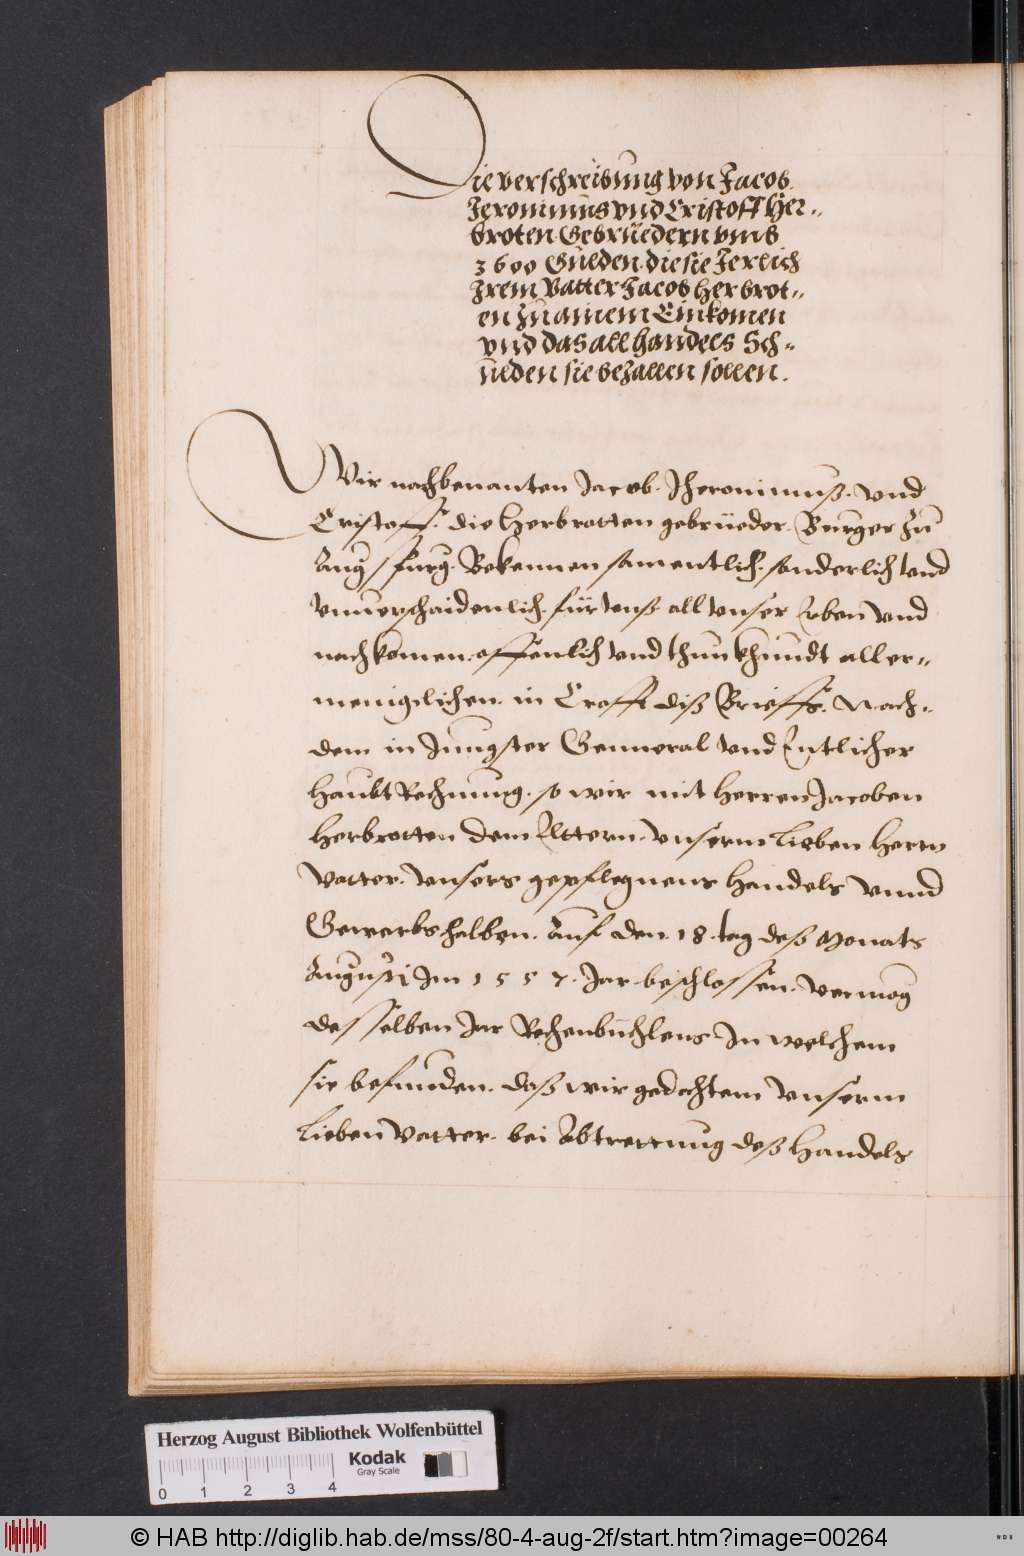 Die verschreibung von Jacob.
Jeronimus vnd Cristoff Her-
broten Gebrüedern vmb
3600 Gulden die sie Jerlich
Jrem Vatter Jacob Herbrot-
en zu ainem Einkomen
vnd das all handels Sch-
ulden sie bezallen sollen.
Wir nachbenanten Jacob. Jheronimuß. vnd
Cristoff. die Herbrotten gebrüeder. Burger zu
Augspurg. Bekennen samentlich. sonderlich vnd
vnuerschaidenlich. für vnß all vnser Erben vnd
nachkomen. offenlich vnd thun khundt aller-
meniglichen. in Crafft diß Brieffs. Nach-
dem in Jungster General vnd Entlicher
haubt Rechnung. so wir mit Herren Jacoben
Herbrotten dem Elttern. vnserm lieben Herrn
Vatter. vnsers gepflegnens Handels vnnd
Gewerbs halben. Auf den. 18. tag deß Monats
Augusti Im 1557. Jar beschlossen. vermög
desselben Jar Rechenbüchlens. In welchem
sie befunden. daß wir gedachtem vnserm
lieben Vatter. bei Abtrettung deß Handels
Herzog August Bibliothek Wolfenbüttel
Kodak
Gray Scale
0 1 2 3 4
© HAB http://diglib.hab.de/mss/80-4-aug-2f/start.htm?image=00264